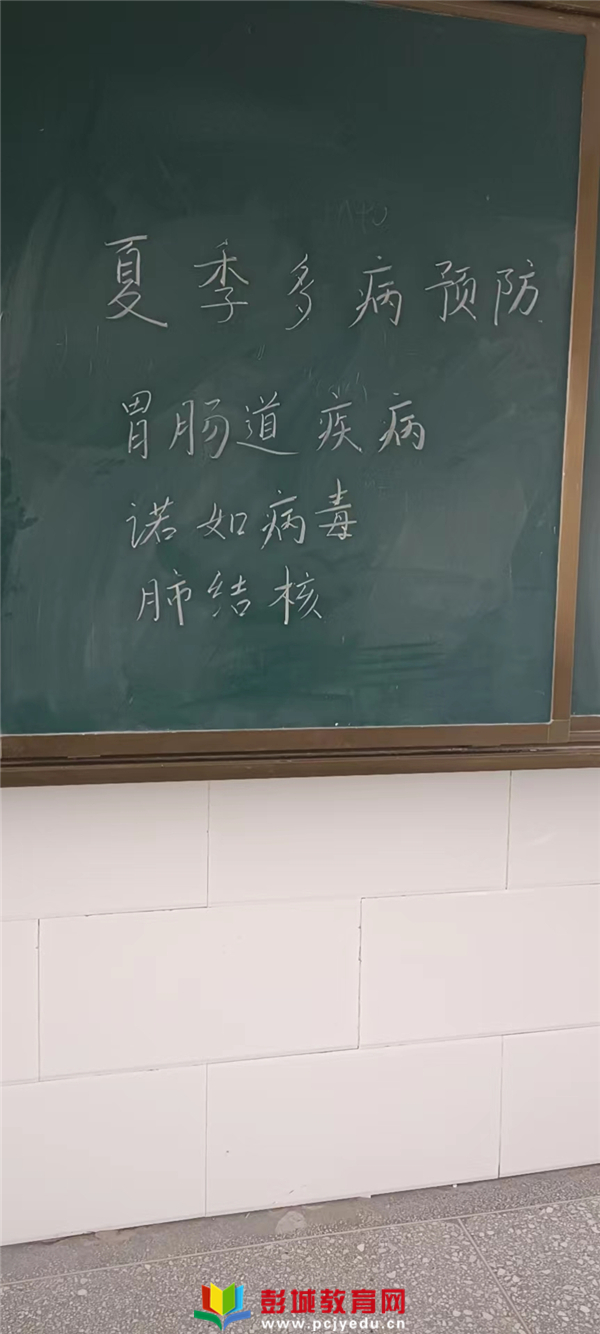 夏季多病预防
胃肠道疾病
诺如病毒
肺结核
彭城教育网
www.pcjyedu.cn